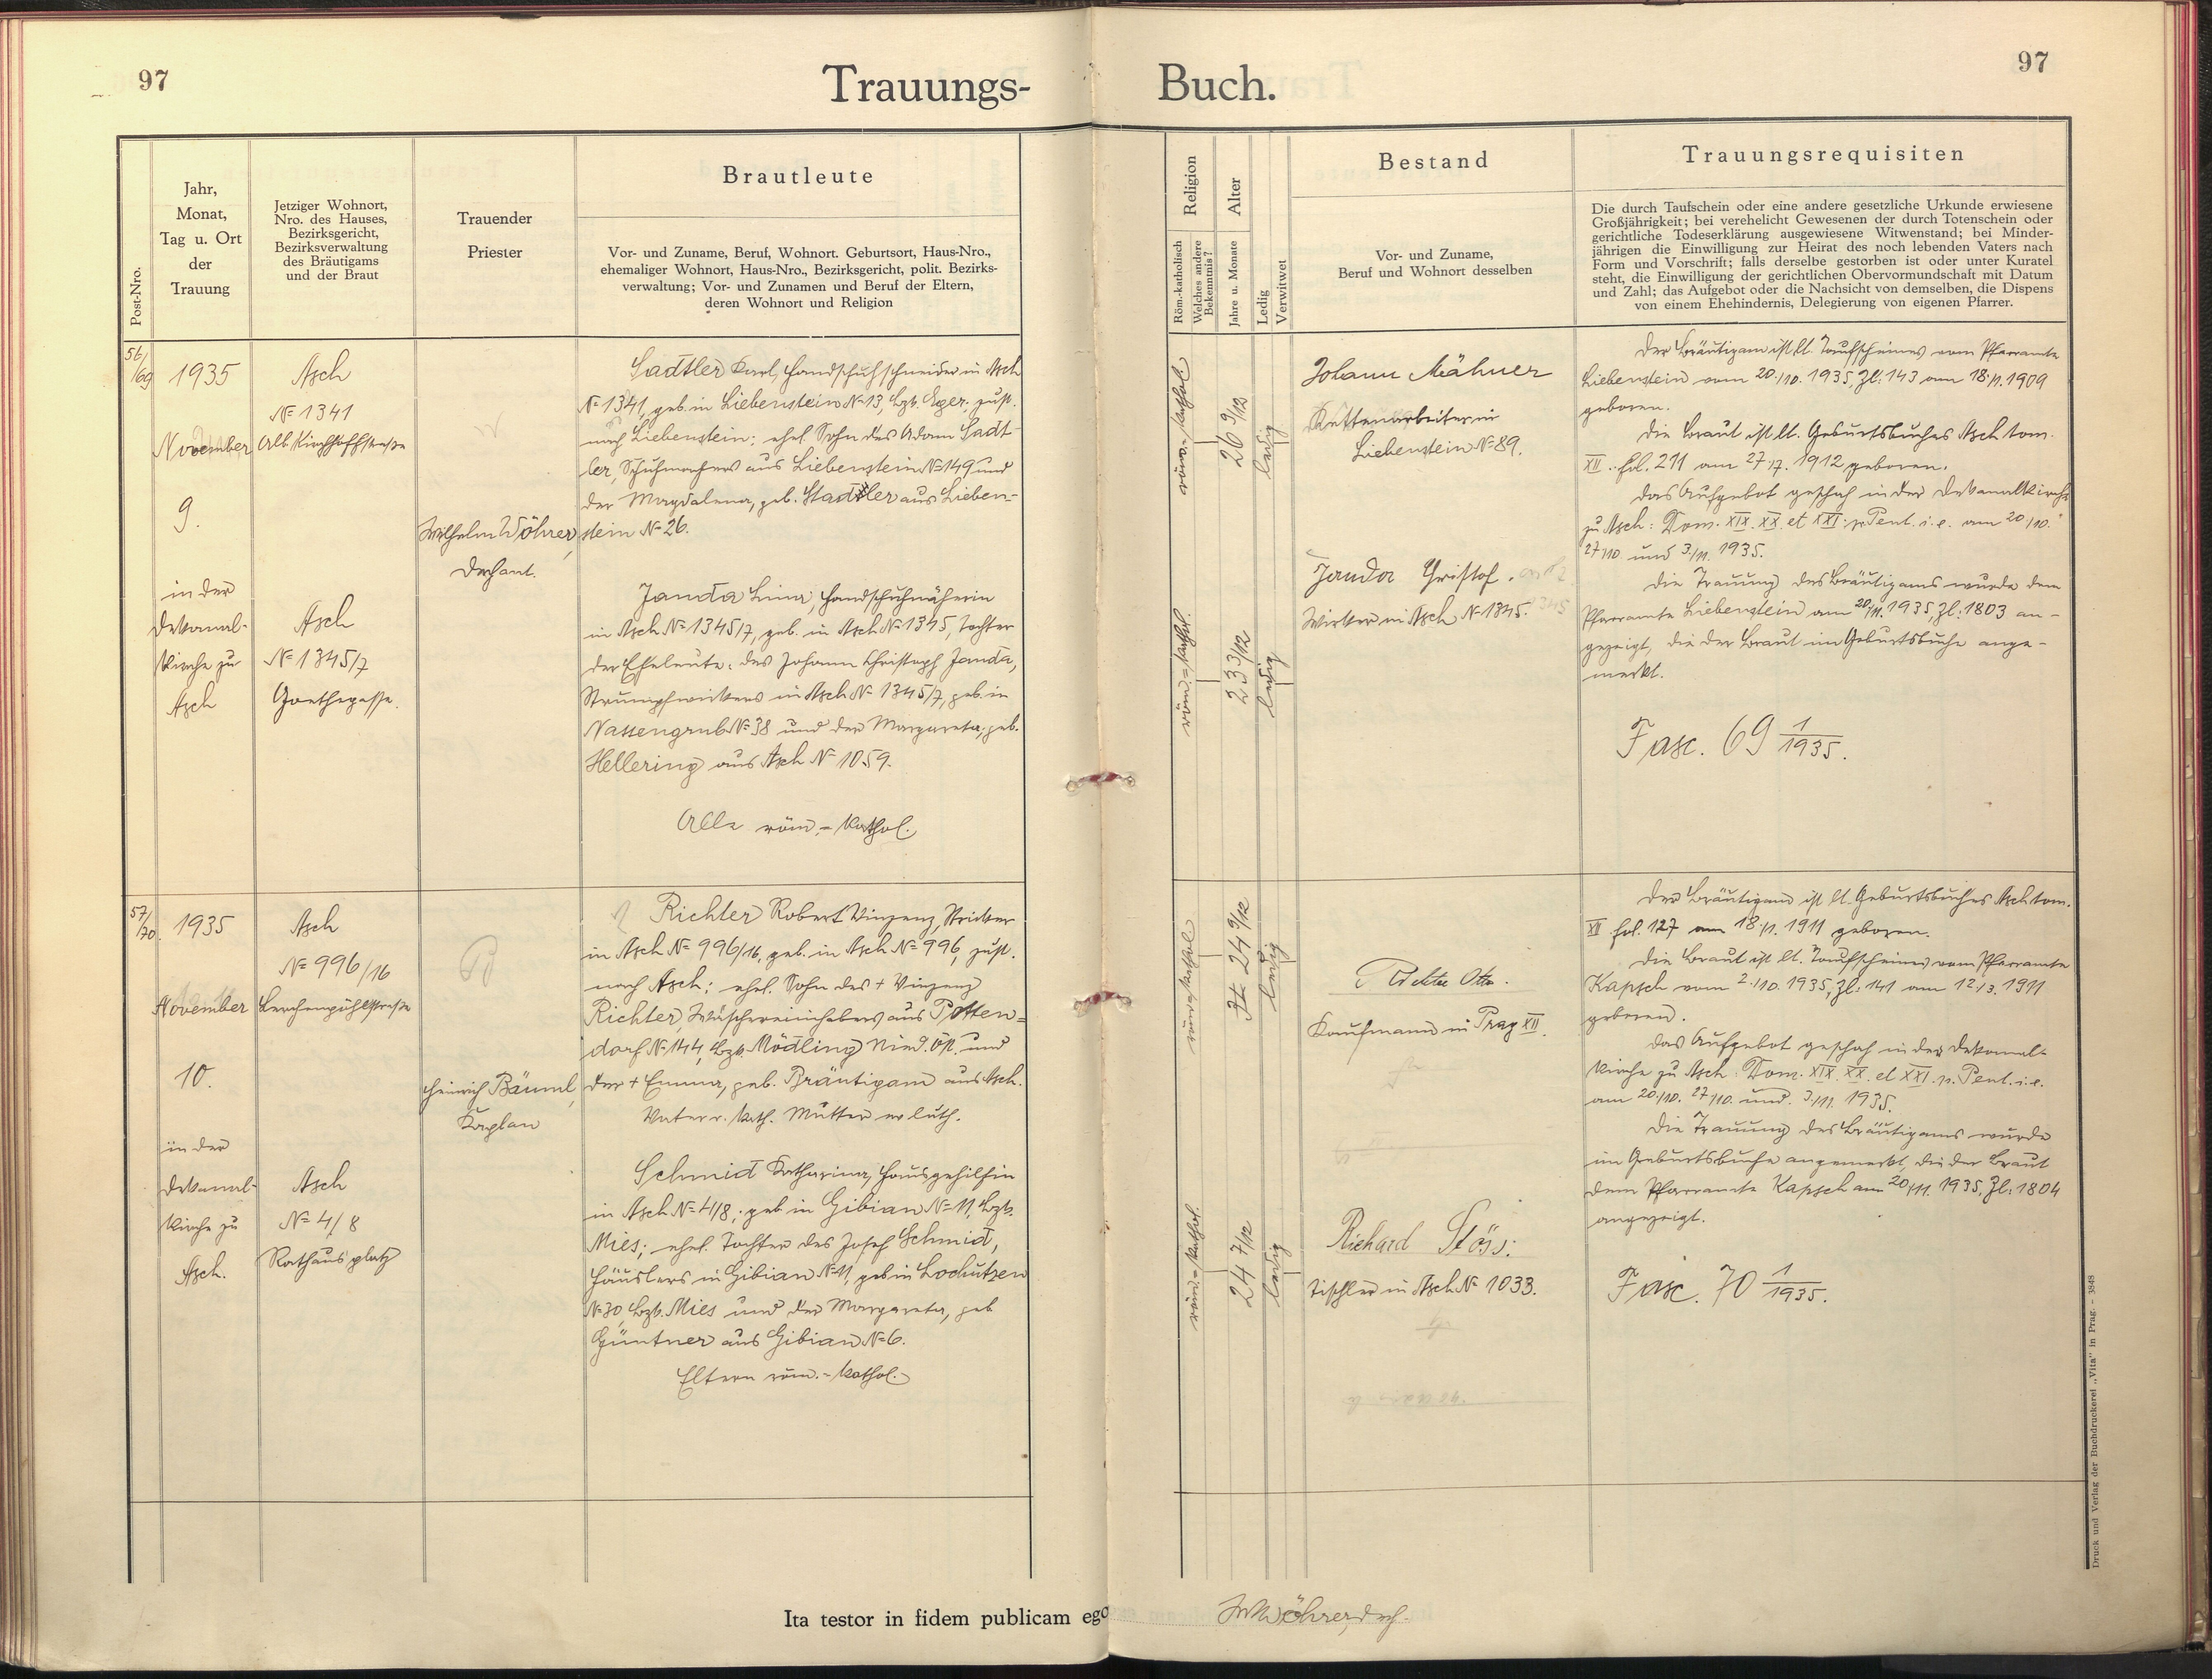 97
Trauungs-
Buch.
97
Post-Nro.
Jahr,
Monat,
Tag u. Ort
der
Trauung
Jetziger Wohnort,
Nro. des Hauses,
Bezirksgericht,
Bezirksverwaltung
des Bräutigams
und der Braut
Trauender
Priester
Brautleute
Vor- und Zuname, Beruf, Wohnort. Geburtsort, Haus-Nro.,
ehemaliger Wohnort, Haus-Nro., Bezirksgericht, polit. Bezirks-
verwaltung; Vor- und Zunamen und Beruf der Eltern,
deren Wohnort und Religion
Religion
Röm.-katholisch
Welches andere
Bekenntnis?
Alter
Jahre u. Monate
Ledig
Verwitwet
Bestand
Vor- und Zuname,
Beruf und Wohnort desselben
Trauungsrequisiten
Die durch Taufschein oder eine andere gesetzliche Urkunde erwiesene
Großjährigkeit; bei verehelicht Gewesenen der durch Totenschein oder
gerichtliche Todeserklärung ausgewiesene Witwenstand; bei Minder-
jährigen die Einwilligung zur Heirat des noch lebenden Vaters nach
Form und Vorschrift; falls derselbe gestorben ist oder unter Kuratel
steht, die Einwilligung der gerichtlichen Obervormundschaft mit Datum
und Zahl; das Aufgebot oder die Nachsicht von demselben, die Dispens
von einem Ehehindernis, Delegierung von eigenen Pfarrer.
56/
/69
1935
November
9.
in der
Dekanal-
Kirche zu
Asch
Asch
№ 1341
Alb. Kirchhoffstraße
Asch
№ 1345/7
Goethegasse.
Wilhelm Wöhrer,
Dechant.
Sadtler Karl, Handschuhschneider in Asch
№ 1341, geb. in Liebenstein № 13, Bzk. Eger, zust.
nach Liebenstein; ehel. Sohn des Adam Sadt-
ler, Schuhmachers aus Liebenstein № 149 und
der Magdalena, geb. Stadler aus Lieben-
stein № 26.
Janda Lina, Handschuhnäherin
in Asch № 1345/7, geb. in Asch № 1345, Tochter
der Eheleute: des Johann Christoph Janda,
Strumpfwirkers in Asch № 1345/7, geb. in
Nassengrub № 38 und der Margareta, geb.
Hellering aus Asch № 1059.
Alle röm.-kathol.
röm.-kathol.
26 9/12
ledig
röm.-kathol.
23 3/12
ledig
Johann Mähner
Liebenstein № 89.
Janda Christof.
Wirker in Asch № 1345.
Der Bräutigam ist lt. Taufscheines vom Pfarramte
Liebenstein vom 20./10. 1935, Zl: 143 am 18./1. 1909
geboren.
Die Braut ist lt. Geburtsbuches Asch tom.
XII. fol. 211 am 27./7. 1912 geboren.
Das Aufgebot geschah in der Dekanalkirche
zu Asch: Dom. XIX. XX. et XXI. p. Pent. i. e. am 20./10.
27./10. und 3./11. 1935.
Die Trauung des Bräutigams wurde dem
Pfarramte Liebenstein am 20./11. 1935, Zl: 1803 an-
gezeigt, die der Braut im Geburtsbuche ange-
merkt.
Fasc. 69 1/1935.
57/
/70.
1935
November
10.
in der
Dekanal-
Kirche zu
Asch.
Asch
№ 996/16
Lerchenpöhlstraße
Asch
№ 4/8
Rathausplatz
Heinrich Bäuml,
Kaplan
Richter Robert Vinzenz, Stricker
in Asch № 996/16, geb. in Asch № 996, zust.
nach Asch; ehel. Sohn des + Vinzenz
Richter, Wäschereiinhabers aus Potten-
dorf № 144, Bzk. Mödling Nied. Öst. und
der + Emma, geb. Bräutigam aus Asch.
Vater r. kath. Mutter ev. luth.
Schmid Katharina, Hausgehilfin
in Asch № 4/8; geb in Gibian № 11, Bzk.
Mies; ehel. Tochter des Josef Schmid,
Häuslers in Gibian № 11, geb in Lochutzen
№ 30, Bzk. Mies und der Margareta, geb
Güntner aus Gibian № 6.
Eltern röm.-kathol.
röm.-kathol.
24 9/12
ledig
röm.-kathol.
24 7/12
ledig
Richter Otto.
Kaufmann in Prag XII.
Richard Stöss:
Tischler in Asch № 1033.
Der Bräutigam ist lt. Geburtsbuches Asch tom.
XII fol. 127 am 18./1. 1911 geboren.
Die Braut ist lt. Taufscheines vom Pfarramte
Kapsch vom 2./10. 1935, Zl: 141 am 12./3. 1911
geboren.
Das Aufgebot geschah in der Dekanal-
kirche zu Asch: Dom. XIX. XX. et XXI. p. Pent. i. e.
am 20./10. 27./10. und 3./11. 1935.
Die Trauung des Bräutigams wurde
im Geburtsbuche angemerkt, die der Braut
dem Pfarramte Kapsch am 20./11. 1935, Zl: 1804
angezeigt.
Fasc. 70 1/1935.
Ita testor in fidem publicam ego
Wöhrer, Dech.
Druck und Verlag der Buchdruckerei „Vita" in Prag. – 3848